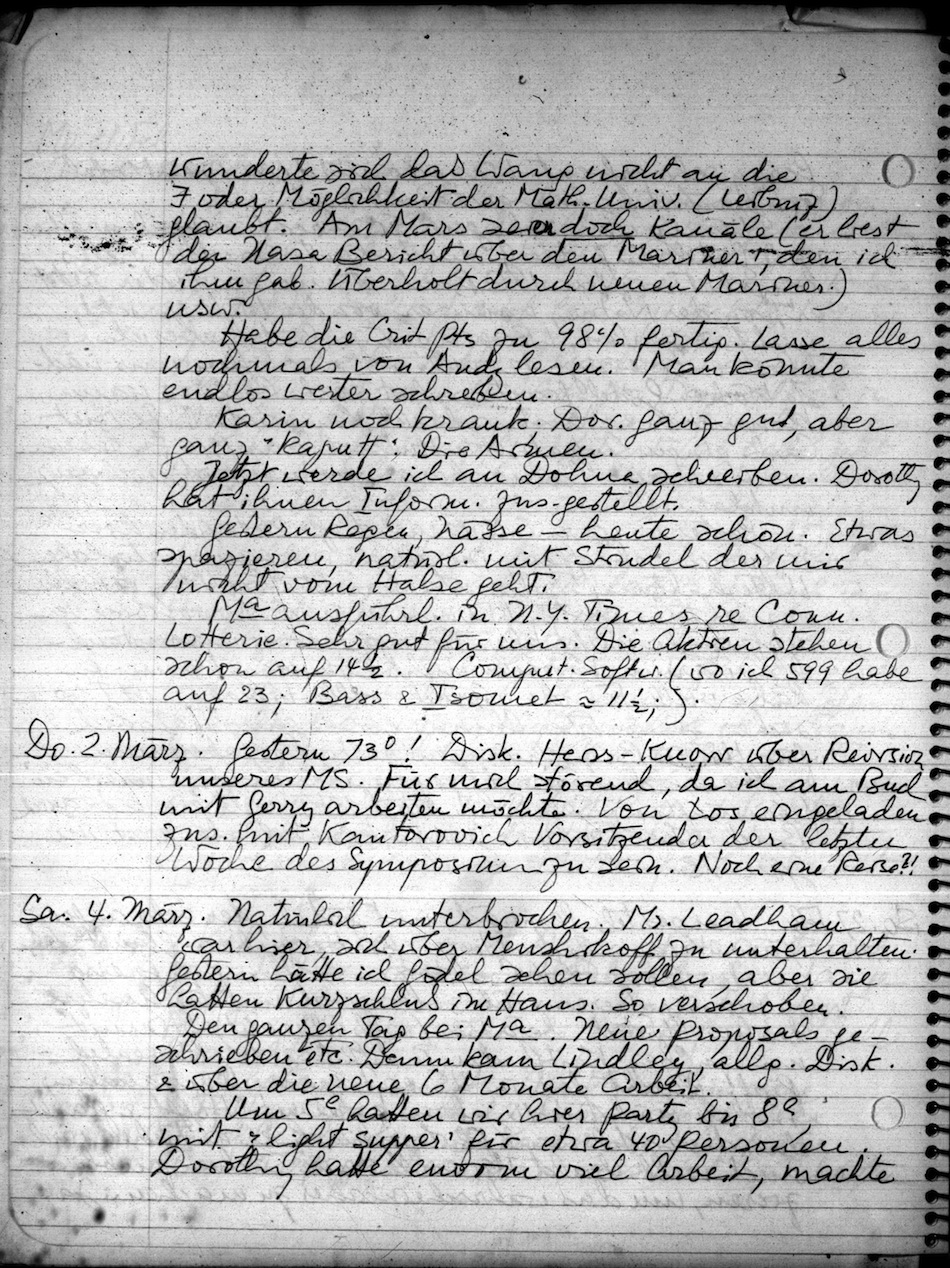 wunderte sich daß Wang nicht an die
∃ oder Möglichkeit der Math. Univ. (Leibniz)
glaubt. Am Mars seien doch Kanäle (er liest
den Nasa Bericht über den Mariner, den ich
ihm gab. Überholt durch neuen Mariner.)
usw.
Habe die Crit Pts zu 98% fertig. Lasse alles
nochmals von Andy lesen. Man könnte
endlos weiter schreiben.
Karin noch krank. Dor. ganz gut, aber
ganz "kaputt". Die Armen.
Jetzt werde ich an Dohna schreiben. Dorothy
hat ihnen Inform. zus.gestellt.
Gestern Regen, Nässe – heute schön. Etwas
spazieren, natürl. mit Strudel der mir
nicht vom Halse geht.
Ma ausführl. in N.Y. Times re Conn.
Lotterie. Sehr gut für uns. Die Aktien stehen
schon auf 14½. Comput. Softw. (wo ich 599 habe
auf 23; Bass & Isomet ≈ 11½;).
Do. 2. März. Gestern 73°! Disk. Heiss-Knorr über Revision
unseres MS. Für mich störend, da ich am Buch
mit Gerry arbeiten möchte. Von Los eingeladen
zus. mit Kantorovich Vorsitzender der letzten
Woche des Symposium zu sein. Noch eine Reise?!
Sa. 4. März. Natürlich unterbrochen. Mr. Leadham
war hier, sich über Menshikoff zu unterhalten.
Gestern hätte ich Gödel sehen sollen, aber sie
hatten Kurzschluß im Haus. So verschoben.
Den ganzen Tag bei Ma. Neue Proposals ge-
schrieben etc. Dann kam Lindley, allg. Disk.
& über die neue, 6 Monate Arbeit.
Um 5h hatten wir hier Party bis 8h,
mit "light supper" für etwa 40 Personen.
Dorothy hatte enorm viel Arbeit, machte